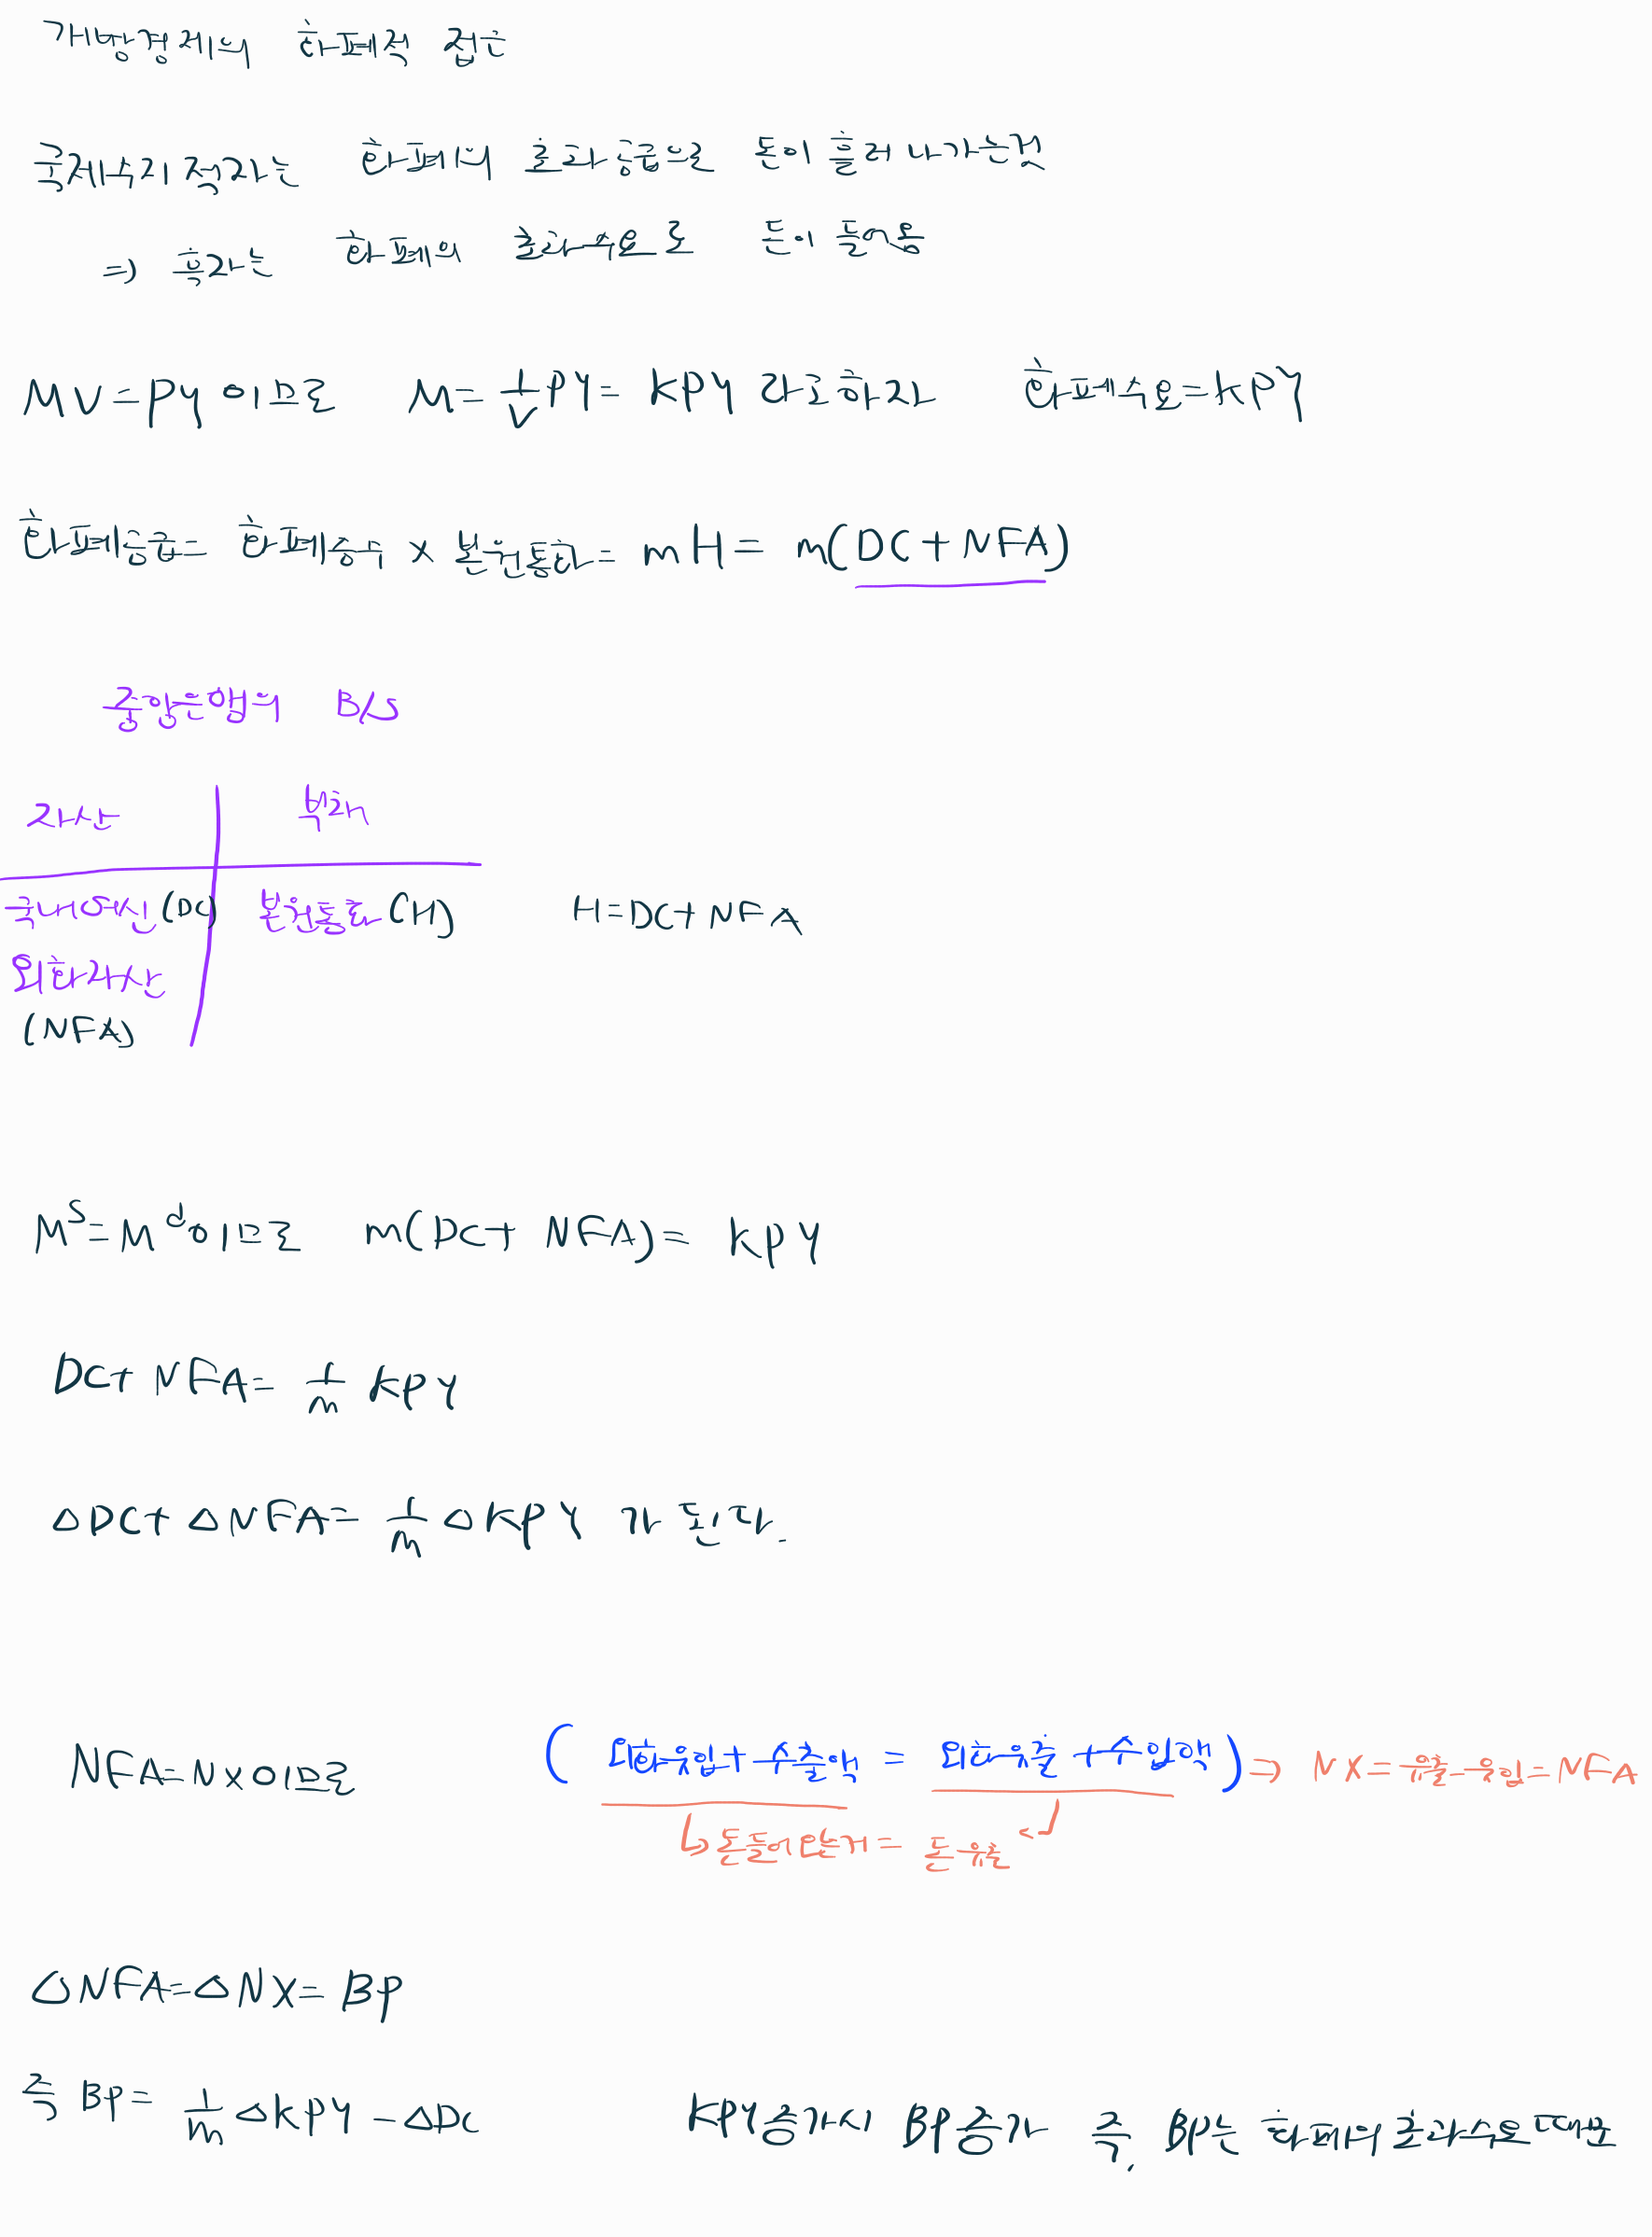 개방경제의 화폐적 접근
국제수지 적자는 화폐의 초과공급으로 돈이 흘러 나가는것
⇒ 흑자는 화폐의 초과수요로 돈이 들어옴
MV=PY 이므로 M= 1/V PY= KPY 라고하자 화폐수요=KPY
화폐공급= 화폐승수 × 본원통화= mH= m(DC+NFA)
중앙은행의 B/S
자산 부채
국내여신(DC) 본원통화(H) H=DC+NFA
외화자산
(NFA)
M^s=M^d이므로 m(DC+ NFA)= KPY
DC+ NFA= 1/m KPY
△DC+ △NFA= 1/m △KPY 가 된다.
NFA=NX이므로 (외화유입+수출액 = 외화유출+수입액) ⇒ NX=유출-유입=NFA
↳돈들어오는거= 돈유출
△NFA=△NX= BP
즉 BP= 1/m △KPY -△DC KPY증가시 BP증가 즉, BP는 화폐의 초과수요때문